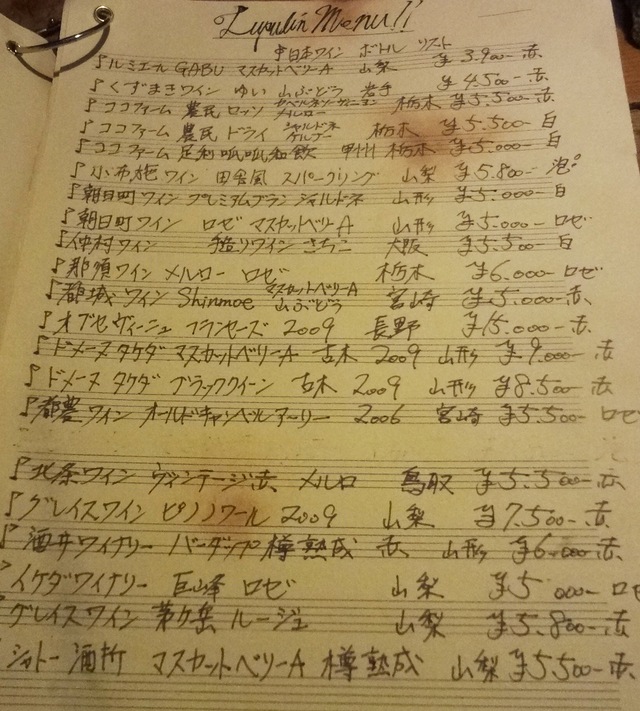 Lupulin Menu!!
日本ワイン ボトル リスト
ルミエール GABU マスカットベリーA 山梨 ¥3.900- 赤
くずまきワイン ゆい 山ぶどう 岩手 ¥4.500- 赤
ココファーム 農民ロッソ カベルネソーヴィニヨン メルロー 栃木 ¥5.500- 赤
ココファーム 農民ドライ シャルドネ ケルナー 栃木 ¥5.500- 白
ココファーム 足利呱呱和飲 甲州 栃木 ¥5.000- 白
小布施ワイン 田舎風 スパークリング 山梨 ¥5.800- 泡
朝日町ワイン プレミアムブラン シャルドネ 山形 ¥5.000- 白
朝日町ワイン ロゼ マスカットベリーA 山形 ¥5.000- ロゼ
仲村ワイン 手造りワイン さちこ 大阪 ¥5.500- 白
那須ワイン メルロー ロゼ 栃木 ¥6.000- ロゼ
都城ワイン Shinmoe マスカットベリーA 山ぶどう 宮崎 ¥5.000- 赤
オブセ ヴィーニュ フランセーズ 2009 長野 ¥15.000- 赤
ドメーヌ タケダ マスカットベリーA 古木 2009 山形 ¥9.000- 赤
ドメーヌ タケダ ブラッククイーン 古木 2009 山形 ¥8.500- 赤
都農ワイン オールドキャンベルアーリー 2006 宮崎 ¥5.500- ロゼ
北条ワイン ヴィンテージ赤 メルロ 鳥取 ¥5.500- 赤
グレイスワイン ピノノワール 2009 山梨 ¥7.500- 赤
酒井ワイナリー バーダップ 樽熟成 赤 山形 ¥6.000- 赤
イケダワイナリー 巨峰 ロゼ 山梨 ¥5.000- ロゼ
グレイスワイン 茅ヶ岳 ルージュ 山梨 ¥5.800- 赤
シャトー酒折 マスカットベリーA 樽熟成 山梨 ¥5.500- 赤